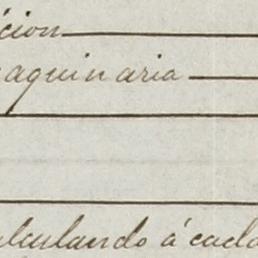 icion
aquinaria
alculando á cada